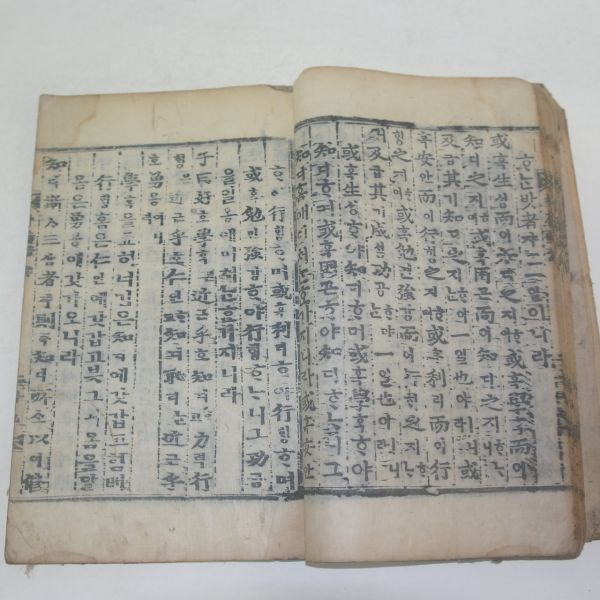 ᄒᆞᄂᆞᆫ바者쟈ᄂᆞᆫ一일이니라
或혹生ᄉᆡᆼ而이知디之지ᄒᆞ며或혹學ᄒᆞᆨ而이
知디之지ᄒᆞ며或혹困곤而이知디之지ᄒᆞᄂᆞ니
及급其기知디之지ᄒᆞ야ᄂᆞᆫ一일也야ㅣ니라或
혹安안而이行ᄒᆡᆼ之지ᄒᆞ며或혹利리而이行
ᄒᆡᆼ之지ᄒᆞ며或혹勉면强강而이行ᄒᆡᆼ之지ᄒᆞᄂᆞ
니及급其기成셩功공ᄒᆞ야ᄂᆞᆫ一일也야ㅣ니라
或혹生ᄉᆡᆼᄒᆞ야知디ᄒᆞ며或혹學ᄒᆞᆨᄒᆞ야
知디ᄒᆞ며或혹困곤ᄒᆞ야知디ᄒᆞᄂᆞ니그
知디홈애미처ᄂᆞᆫᄒᆞᆫ가지니라或혹安안
ᄒᆞ야行ᄒᆡᆼᄒᆞ며或혹利리ᄒᆞ야行ᄒᆡᆼᄒᆞ며
或혹勉면强강ᄒᆞ야行ᄒᆡᆼᄒᆞᄂᆞ니그功공
을일옴애미처ᄂᆞᆫᄒᆞᆫ가지니라
好호學ᄒᆞᆨ은近근乎호知디ᄒᆞ고力력行
ᄒᆡᆼ은近근乎호仁인ᄒᆞ고知디恥티ᄂᆞᆫ近근乎
호勇용이니라
學ᄒᆞᆨ을好호홈은知디예갓갑고힘ᄡᅥ
行ᄒᆡᆼ홈은仁인에갓갑고븟그러옴을알
옴은勇용에갓가오니라
知디斯ᄉᆞ三삼者쟈則즉知디所소以이脩